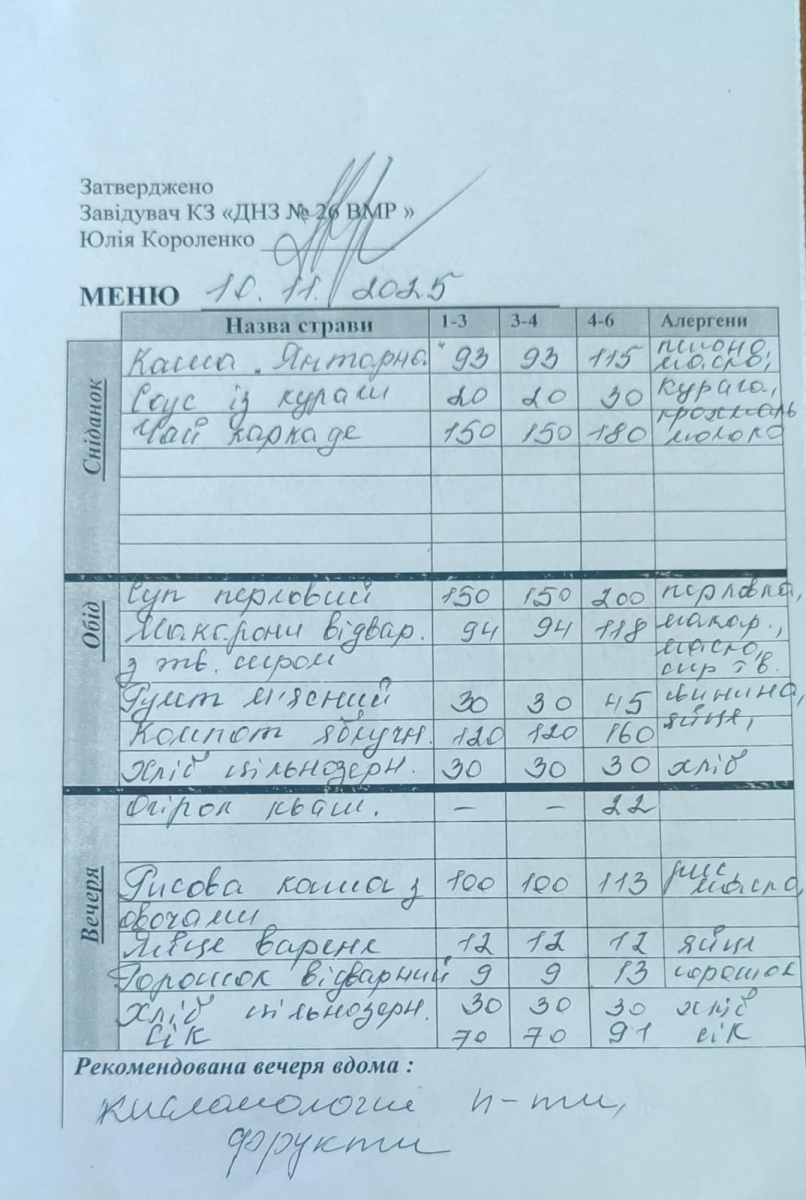 Затверджено
Завідувач КЗ «ДНЗ № 26 ВМР »
Юлія Короленко
МЕНЮ 10.11.2025
Назва страви 1-3 3-4 4-6 Алергени
Сніданок
Каша "Янтарна" 93 93 115 пшоно, масло,
Соус із кураги 20 20 30 курага, крохмаль
Чай каркаде 150 150 180 молоко
Обід
Суп перловий 150 150 200 перловка,
Макарони відвар. 94 94 118 макар.,
з тв. сиром масло, сир тв.
Рулет м'ясний 30 30 45 свинина,
Компот яблучн. 120 120 160 яйце,
Хліб цільнозерн. 30 30 30 хліб
Вечеря
Огірок кваш. – – 22
Рисова каша з 100 100 113 рис, масло,
овочами
Яйце варене 12 12 12 яйце
Горошок відварний 9 9 13 горошок
Хліб цільнозерн. 30 30 30 хліб
Сік 70 70 91 сік
Рекомендована вечеря вдома :
кисломолочні п-ти,
фрукти